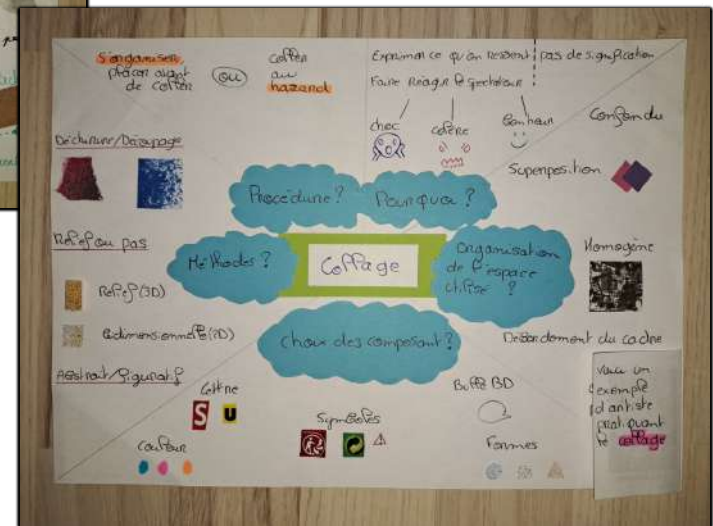 S'organiser,
placer avant
de coller
ou
coller
au
hazard
Exprimer ce qu'on ressent
pas de signification
Faire réagir le spectateur
choc
colère
Bonheur
Confondu
Superposition
Déchirure/Découpage
Procédure ?
Pourquoi ?
Relief ou pas
Relief (3D)
Bidimensionnelle (2D)
Abstrait/figuratif
Méthodes ?
Collage
Organisation
de l'espace
utilisé ?
Homogène
Débordement du cadre
Choix des composant ?
Lettre
S U
Couleur
Symboles
Bulle BD
Formes
Voici un
exemple
d'artiste
pratiquant
le collage